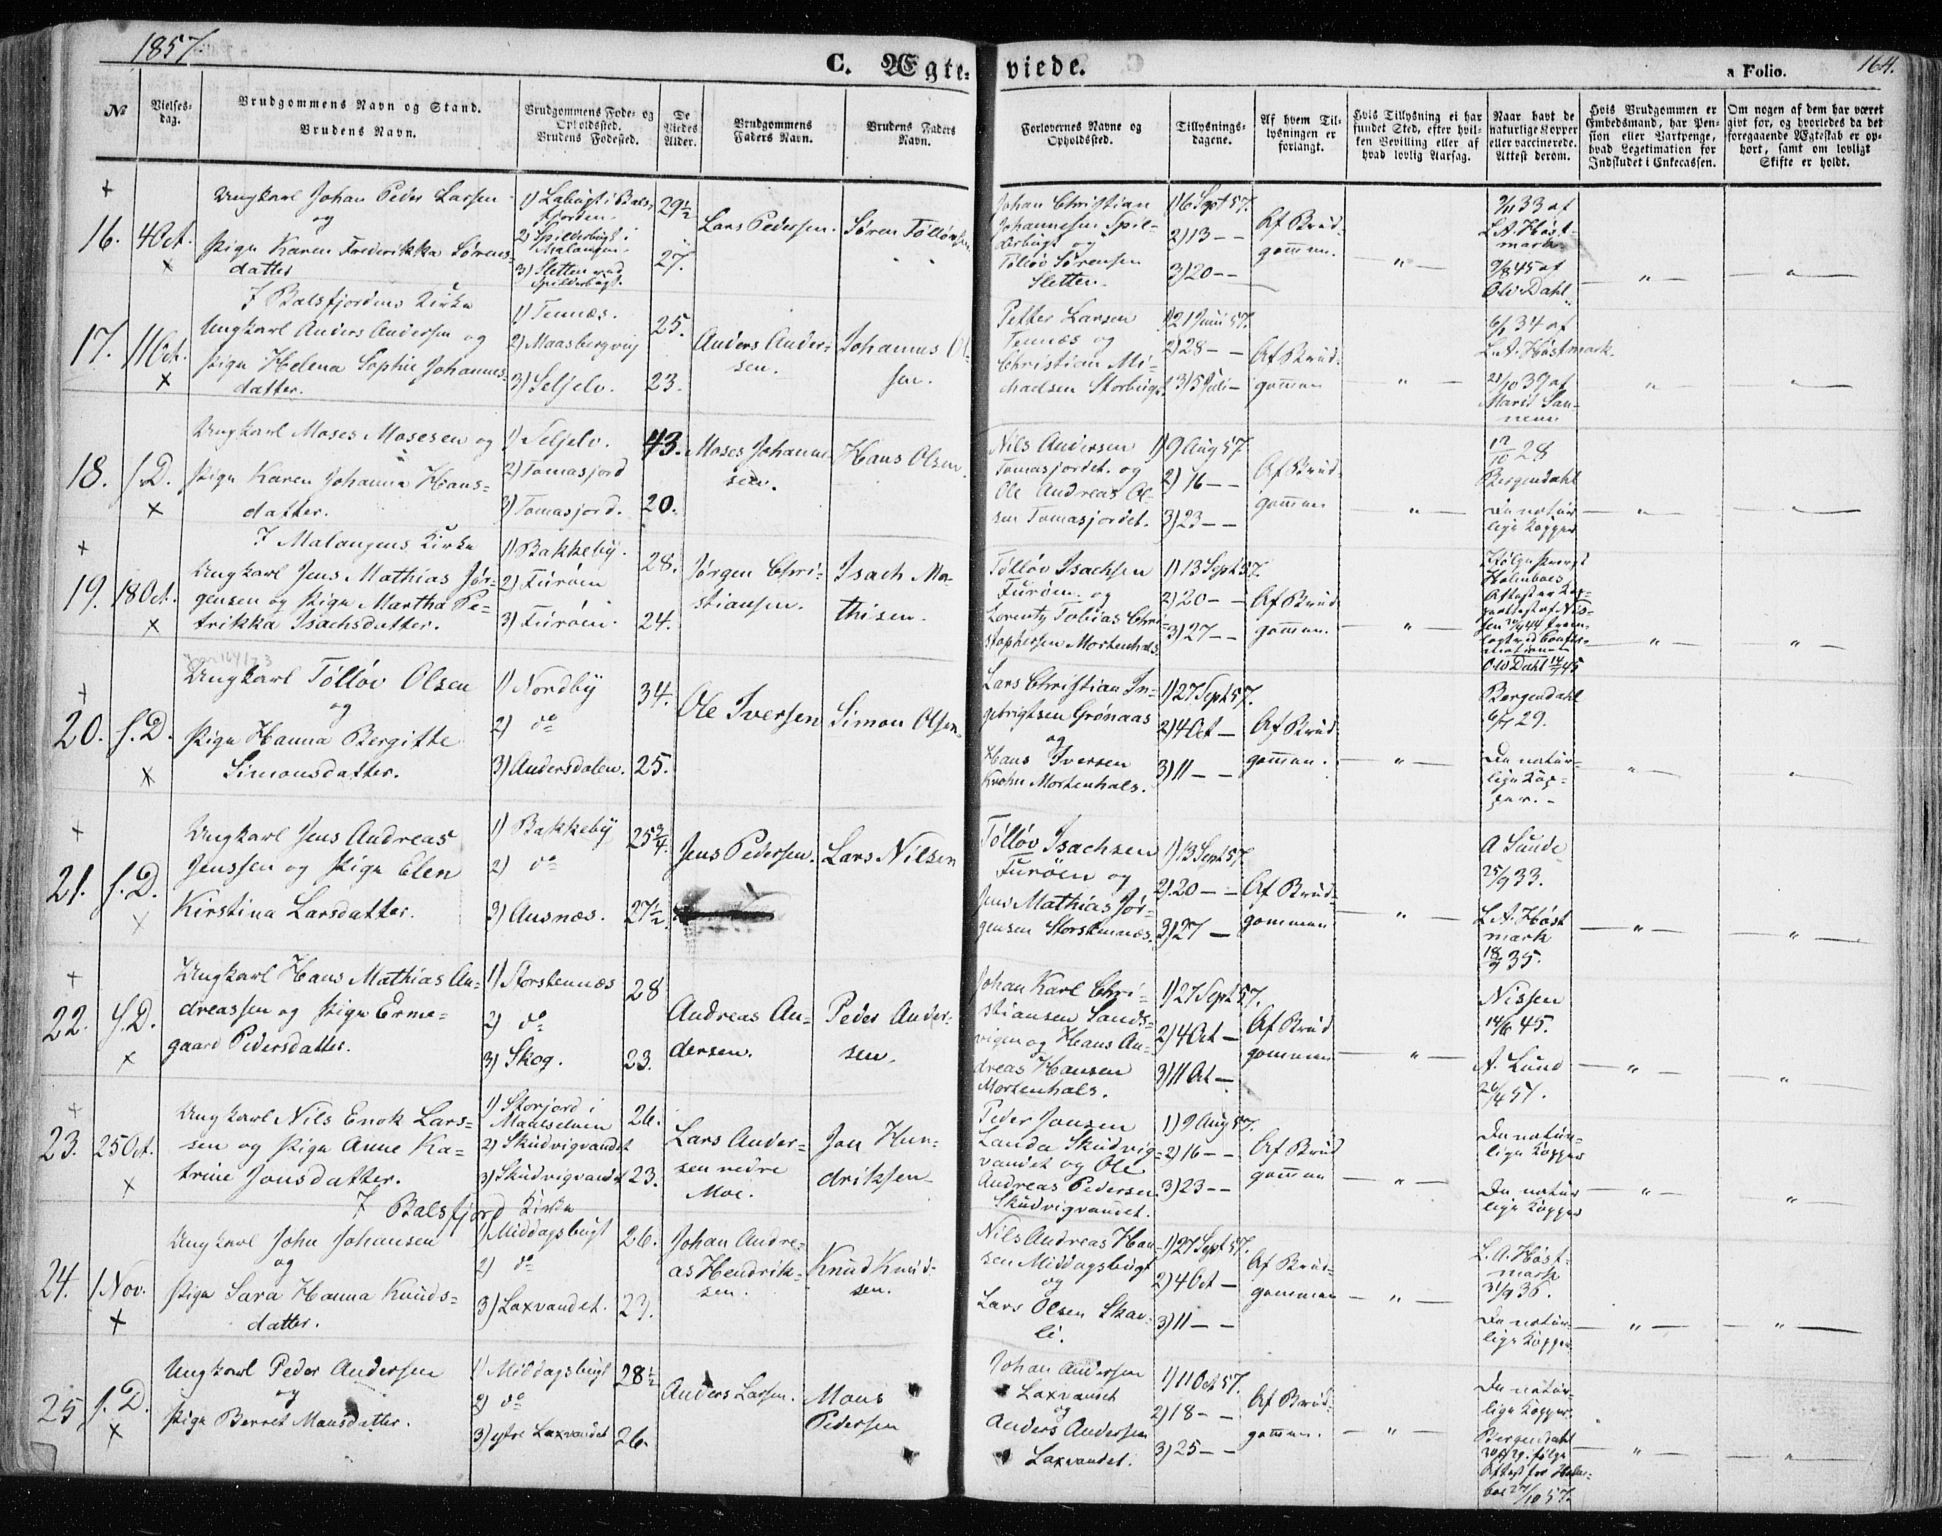 1857
C. Ægte-viede.
a Folio.
164.
No
Vielses-
dag.
Brudgommens Navn og Stand.
Brudens Navn.
Brudgommens Føde- og
Opholdssted.
Brudens Fødested.
De
Viedes
Alder.
Brudgommens
Faders Navn.
Brudens Faders
Navn.
Forlovernes Navne og
Opholdssted.
Tillysnings-
dagene.
Af hvem Til-
lysningen er
forlangt.
Hvis Tillysning ei har
fundet Sted, efter hvil-
ken Bevilling eller af
hvad lovlig Aarsag.
Naar havt de
naturlige Kopper
eller vaccinerede.
Attest derom.
Hvis Brudgommen er
Embedsmand, har Pen-
sion eller Vartpenge,
hvad Legetimation for
Indskudet i Enkecassen.
Om nogen af dem har været
givt for, og hvorledes da det
foregaaende Ægteskab er op-
hørt, samt om lovligt
Skifte er holdt.
16.
4 Oct.
Ungkarl Johan Peder Larsen
og
Pige Karen Frederikka Sørens-
datter
1) Labugt i Bals-
fjorden
2) Spilderbugt i
Malangen
3) Sletten ved
Spilderbugt.
29½
27.
Lars Pedersen.
Søren Tølløvsen
Johan Christian
Johannesen Spil-
derbugt og
Tølløv Sørensen
Sletten.
1) 6 Sept 57.
2) 13 — —
3) 20 — —
Af Brud-
gommen.
9/11 33 af
L.A. Høst-
mark
9/8 45 af
Ole Dahl.
I Balsfjordens Kirke
17.
11 Oct.
Ungkarl Anders Andersen og
Pige Helena Sophie Johannes-
datter.
1) Tennæs.
2) Maasbergvig
3) Seljelv.
25.
23.
Anders Ander-
sen.
Johannes Ol-
sen.
Petter Larsen
Tennæs og
Christian Mi-
chaelsen Storbugt
1) 21 Juni 57.
2) 28 — —
3) 5 Juli —
Af Brud-
gommen
6/7 34 af
L.A. Høstmark.
21/10 37 af
18.
s. D.
Ungkarl Moses Mosesen og
Pige Karen Johanna Hans-
datter.
1) Seljelv.
2) Tomasjord
3) Tomasjord.
43.
20.
Moses Johanne-
sen.
Hans Olsen.
Nils Andersen
Tomasjordet. og
Ole Andreas Ol-
sen Tomasjordet.
1) 9 Aug 57.
2) 16 — —
3) 23 — —
Af Brud-
gommen
17/10 28
Bergendahl
De natur-
lige Kopper
I Malangens Kirke
19.
18 Oct.
Ungkarl Jens Mathias Jør-
gensen og Pige Martha Pe-
trikka Isachsdatter.
1) Bakkeby.
2) Furøen
3) Furøen.
28.
24.
Jørgen Chri-
stiansen.
Isach Ma-
thisen.
Tølløv Isachsen
Furøen. og
Lorentz Tobias Chri-
stophersen Mortenhals
1) 13 Sept 57.
2) 20 — —
3) 27 — —
Af Brud-
gommen.
Ole Dahl 14/7 45
20.
s. D.
Ungkarl Tølløv Olsen
og
Pige Hanna Bergitte
Simonsdatter.
1) Nordby
2) do
3) Andersdalen.
34.
25.
Ole Iversen
Simon Olsen.
Lars Christian In-
gebrigtsen Grønaas
og
Hans Iversen
Krohn Mortenhals.
1) 27 Sept 57.
2) 4 Oct —
3) 11 — —
Af Brud-
gommen.
Bergendahl
6/7 29.
De natur-
lige Kop-
per. -
21.
s. D.
Ungkarl Jens Andreas
Jenssen og Pige Elen
Kirstina Larsdatter.
1) Bakkeby
2) do
3) Ausnæs.
25¾
27½
Jens Pedersen.
Lars Nilsen
Tølløv Isachsen
Furøen og
Jens Mathias Jør-
gensen Storstennæs
1) 13 Sept 57.
2) 20 — —
3) 27 —
Af Brud-
gommen
A Sunde
25/9 33.
L.A. Høst
mark
18/9 35.
22.
s. D.
Ungkarl Hans Mathias An-
dreassen og Pige Erme-
gaard Pedersdatter.
1) Storstennæs
2) do
3) Skog.
28
23.
Andreas An-
dersen.
Peder Ander-
sen.
Johan Karl Chri-
stiansen Sands-
vigen og Hans An-
dreas Hansen
Mortenhals.
1) 27 Sept 57.
2) 4 Oct —
3) 11 Oct —
Af Brud
gommen
Nissen
14/6 45.
A. Lund
24/4 57.
23.
25 Oct.
Ungkarl Nils Enok Lars-
sen og Pige Anne Ka-
trine Jonsdatter.
1) Storjord i
Maalselven
2) Skudvigvandet
3) Skudvigvandet
26.
23.
Lars Ander-
sen nedre
Moe.
Jon Hen-
driksen
Peder Jonsen
Landa Skudvig-
vandet og Ole
Andreas Pedersen
Skudvigvandet.
1) 9 Aug 57.
2) 16 — —
3) 23 — —
Af Brud
gommen
De natur-
lige Kopper
De natur
lige Kopper
I Balsfjord Kirke
24.
1 Nov.
Ungkarl John Johansen
og
Pige Sara Hanna Knuds-
datter.
1) Middagsbugt
2) do
3) Laxvandet.
26.
23.
Johan Andre-
as Hendrik-
sen.
Knud Knud-
sen.
Nils Andreas Han-
sen Middagsbugt
og
Lars Olsen Skav-
li.
1) 27 Sept 57.
2) 4 Oct —
3) 11 — —
Af Brud-
gommen
L.A. Høst-
mark
31/9 36.
De natur-
lige Kopper
25
s. D.
Ungkarl Peder Andersen
og
Pige Berret Monsdatter.
1) Middagsbugt
2) do
3) ytre Laxvandet
28½
26.
Anders Larsen.
Mons
Pedersen
Johan Andersen
Laxvandet
og
Anders Andersen
Laxvandet.
1) 11 Oct 57.
2) 18 — —
3) 25 — —
Af Brud-
gommen.
De natur-
lige Kopper.
Bergendahl